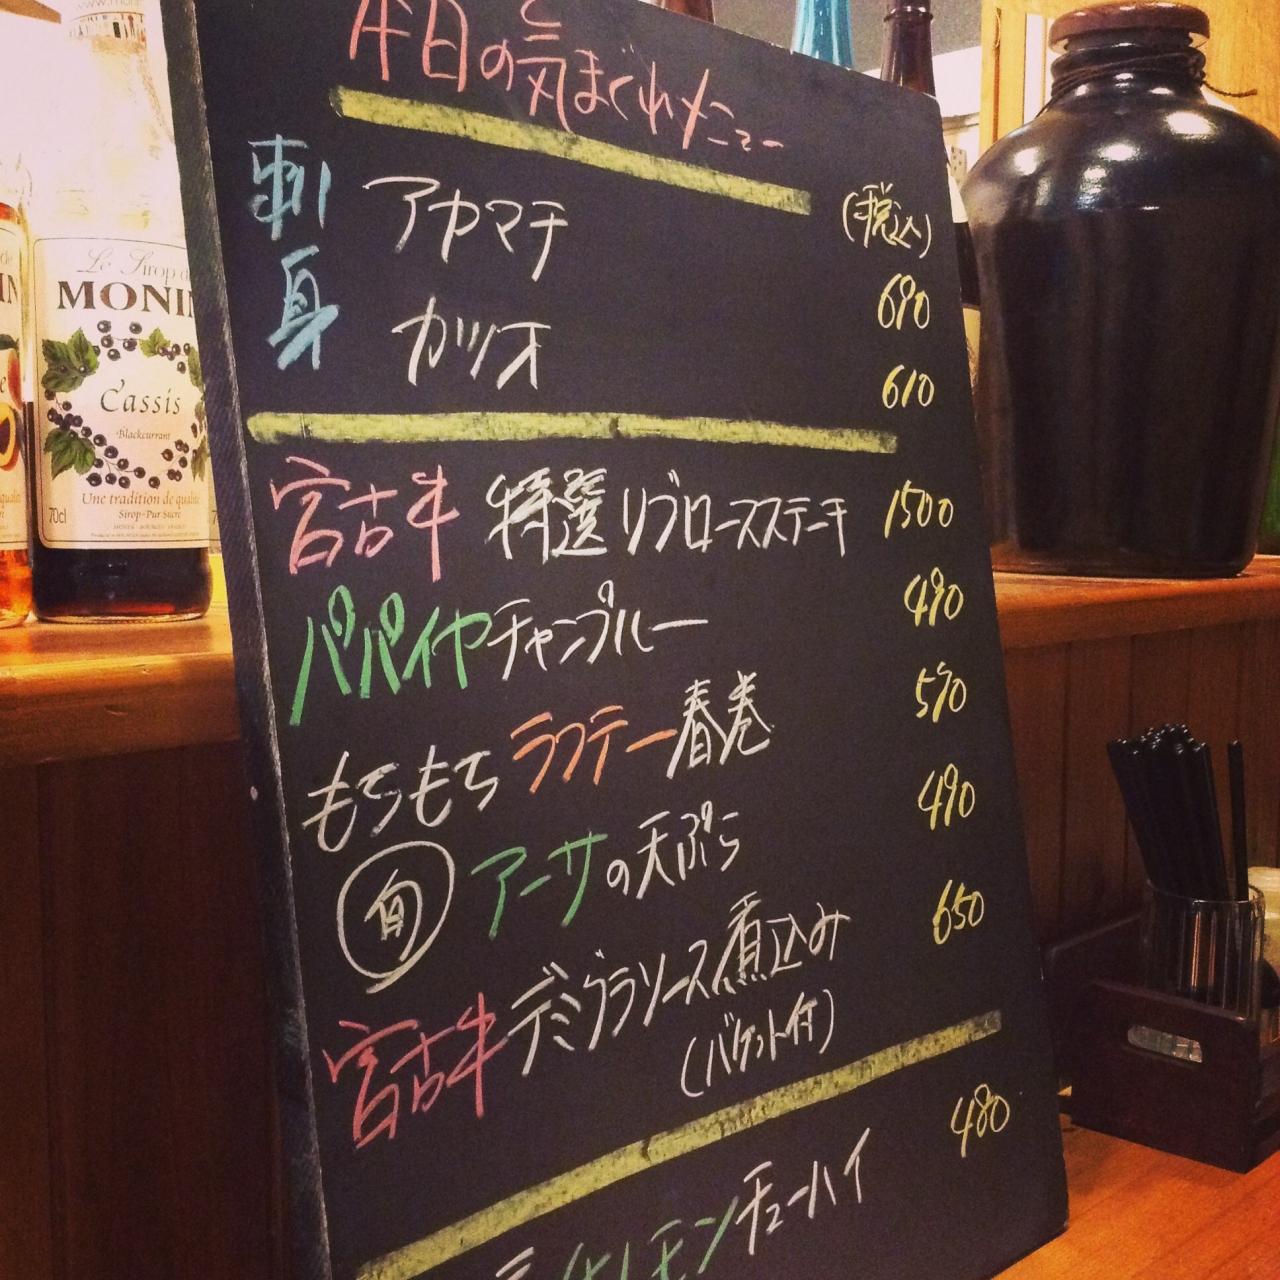 本日の気まぐれメニュー
(税込)
刺身
アカマチ 690
カツオ 610
宮古牛 特選リブロースステーキ 1500
パパイヤチャンプルー 490
もちもちラフテー春巻 590
旬 アーサの天ぷら 490
宮古牛デミグラソース煮込み 650
(バケット付)
レモンチューハイ 480
Le Sirop de
MONIN
Cassis
Blackcurrant
Une tradition de qualité
Sirop-Pur Sucre
70cl